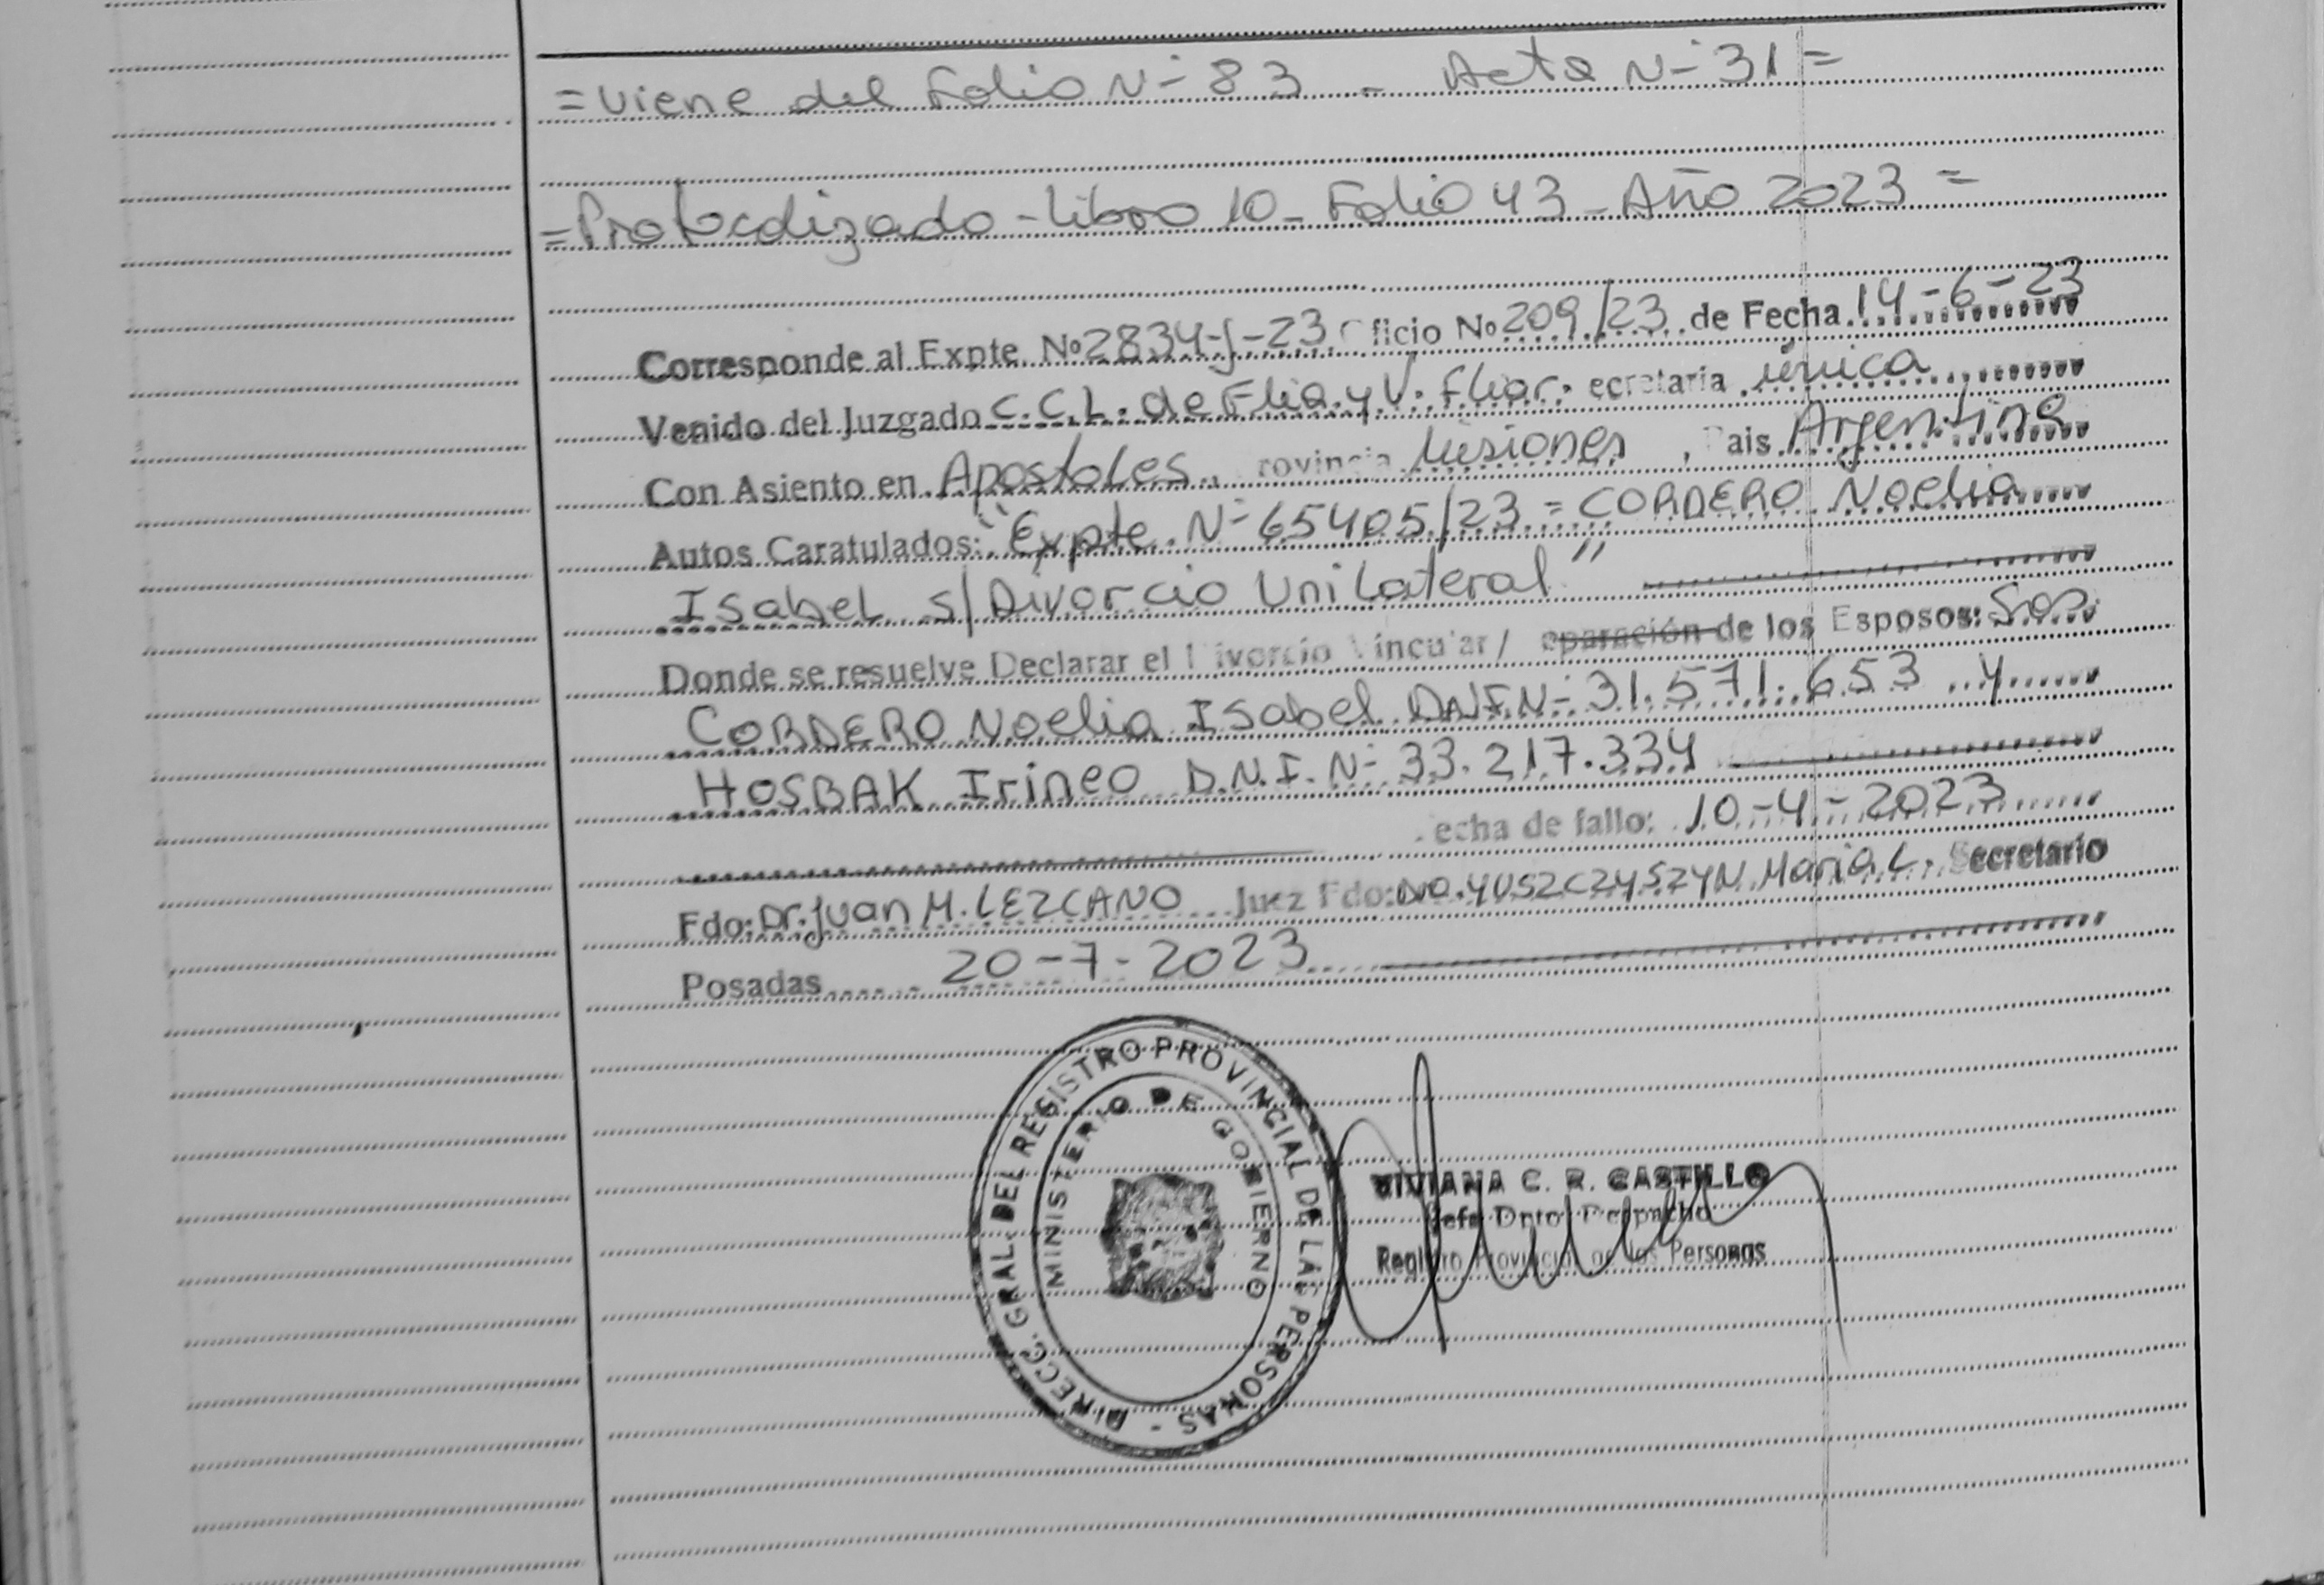 = Viene del Folio N- 83 - Acta N- 31 =
= Protocolizado - Libro 10 - Folio 43 - Año 2023 =
Corresponde al Expte. Nº 2834-J-23 Oficio Nº 209/23 de Fecha 14-6-23
Venido del Juzgado C.C.L. de Flia. y V. Fliar. Secretaria única
Con Asiento en Apostoles, Provincia Misiones, Pais Argentina
Autos Caratulados: "Expte. N- 65405/23 = CORDERO Noelia
Isabel s/ Divorcio Unilateral"
Donde se resuelve Declarar el Divorcio Vincular / Separación de los Esposos:
CORDERO Noelia Isabel D.N.I. N- 31.571.653 y
HOSBAK Irineo D.N.I. N- 33.217.334
Fecha de fallo: 10-4-2023
Fdo: Dr. Juan M. LEZCANO Juez Fdo: Dra. YUSZCZYSZYN Maria L. Secretario
Posadas 20-7-2023
DIRECC. GRAL. DEL REGISTRO PROVINCIAL DE LAS PERSONAS -
MINISTERIO DE GOBIERNO
VIVIANA C. R. CASTILLO
Jefe Dpto. Despacho
Registro Provincial de las Personas